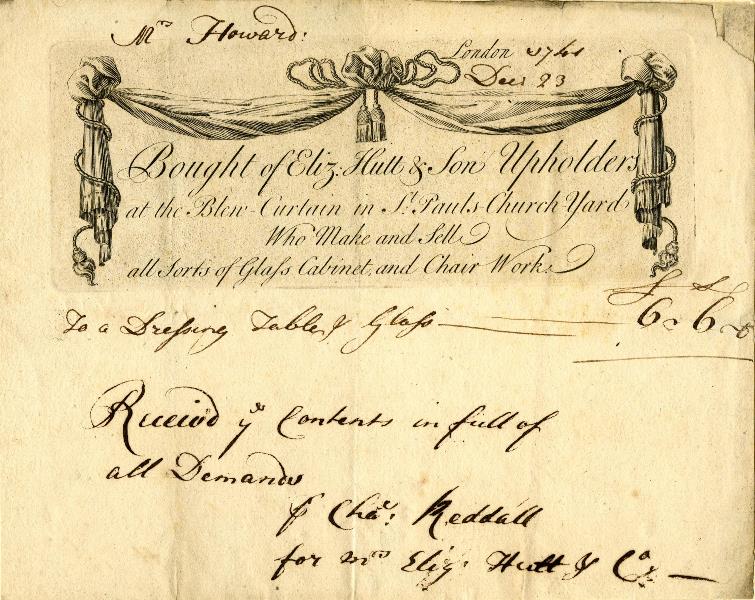 Mrs Howard:
London 1741
Decr 23
Bought of Eliz: Hutt & Son Upholders
at the Blew-Curtain in St. Pauls Church Yard
Who Make and Sell
all Sorts of Glass Cabinet, and Chair Work.
£ s
To a Dressing Table & Glass — 6 " 6 "
Receivd ye Contents in full of
all Demands
p Chas: Reddall
for Mrs Eliz: Hutt & Co —